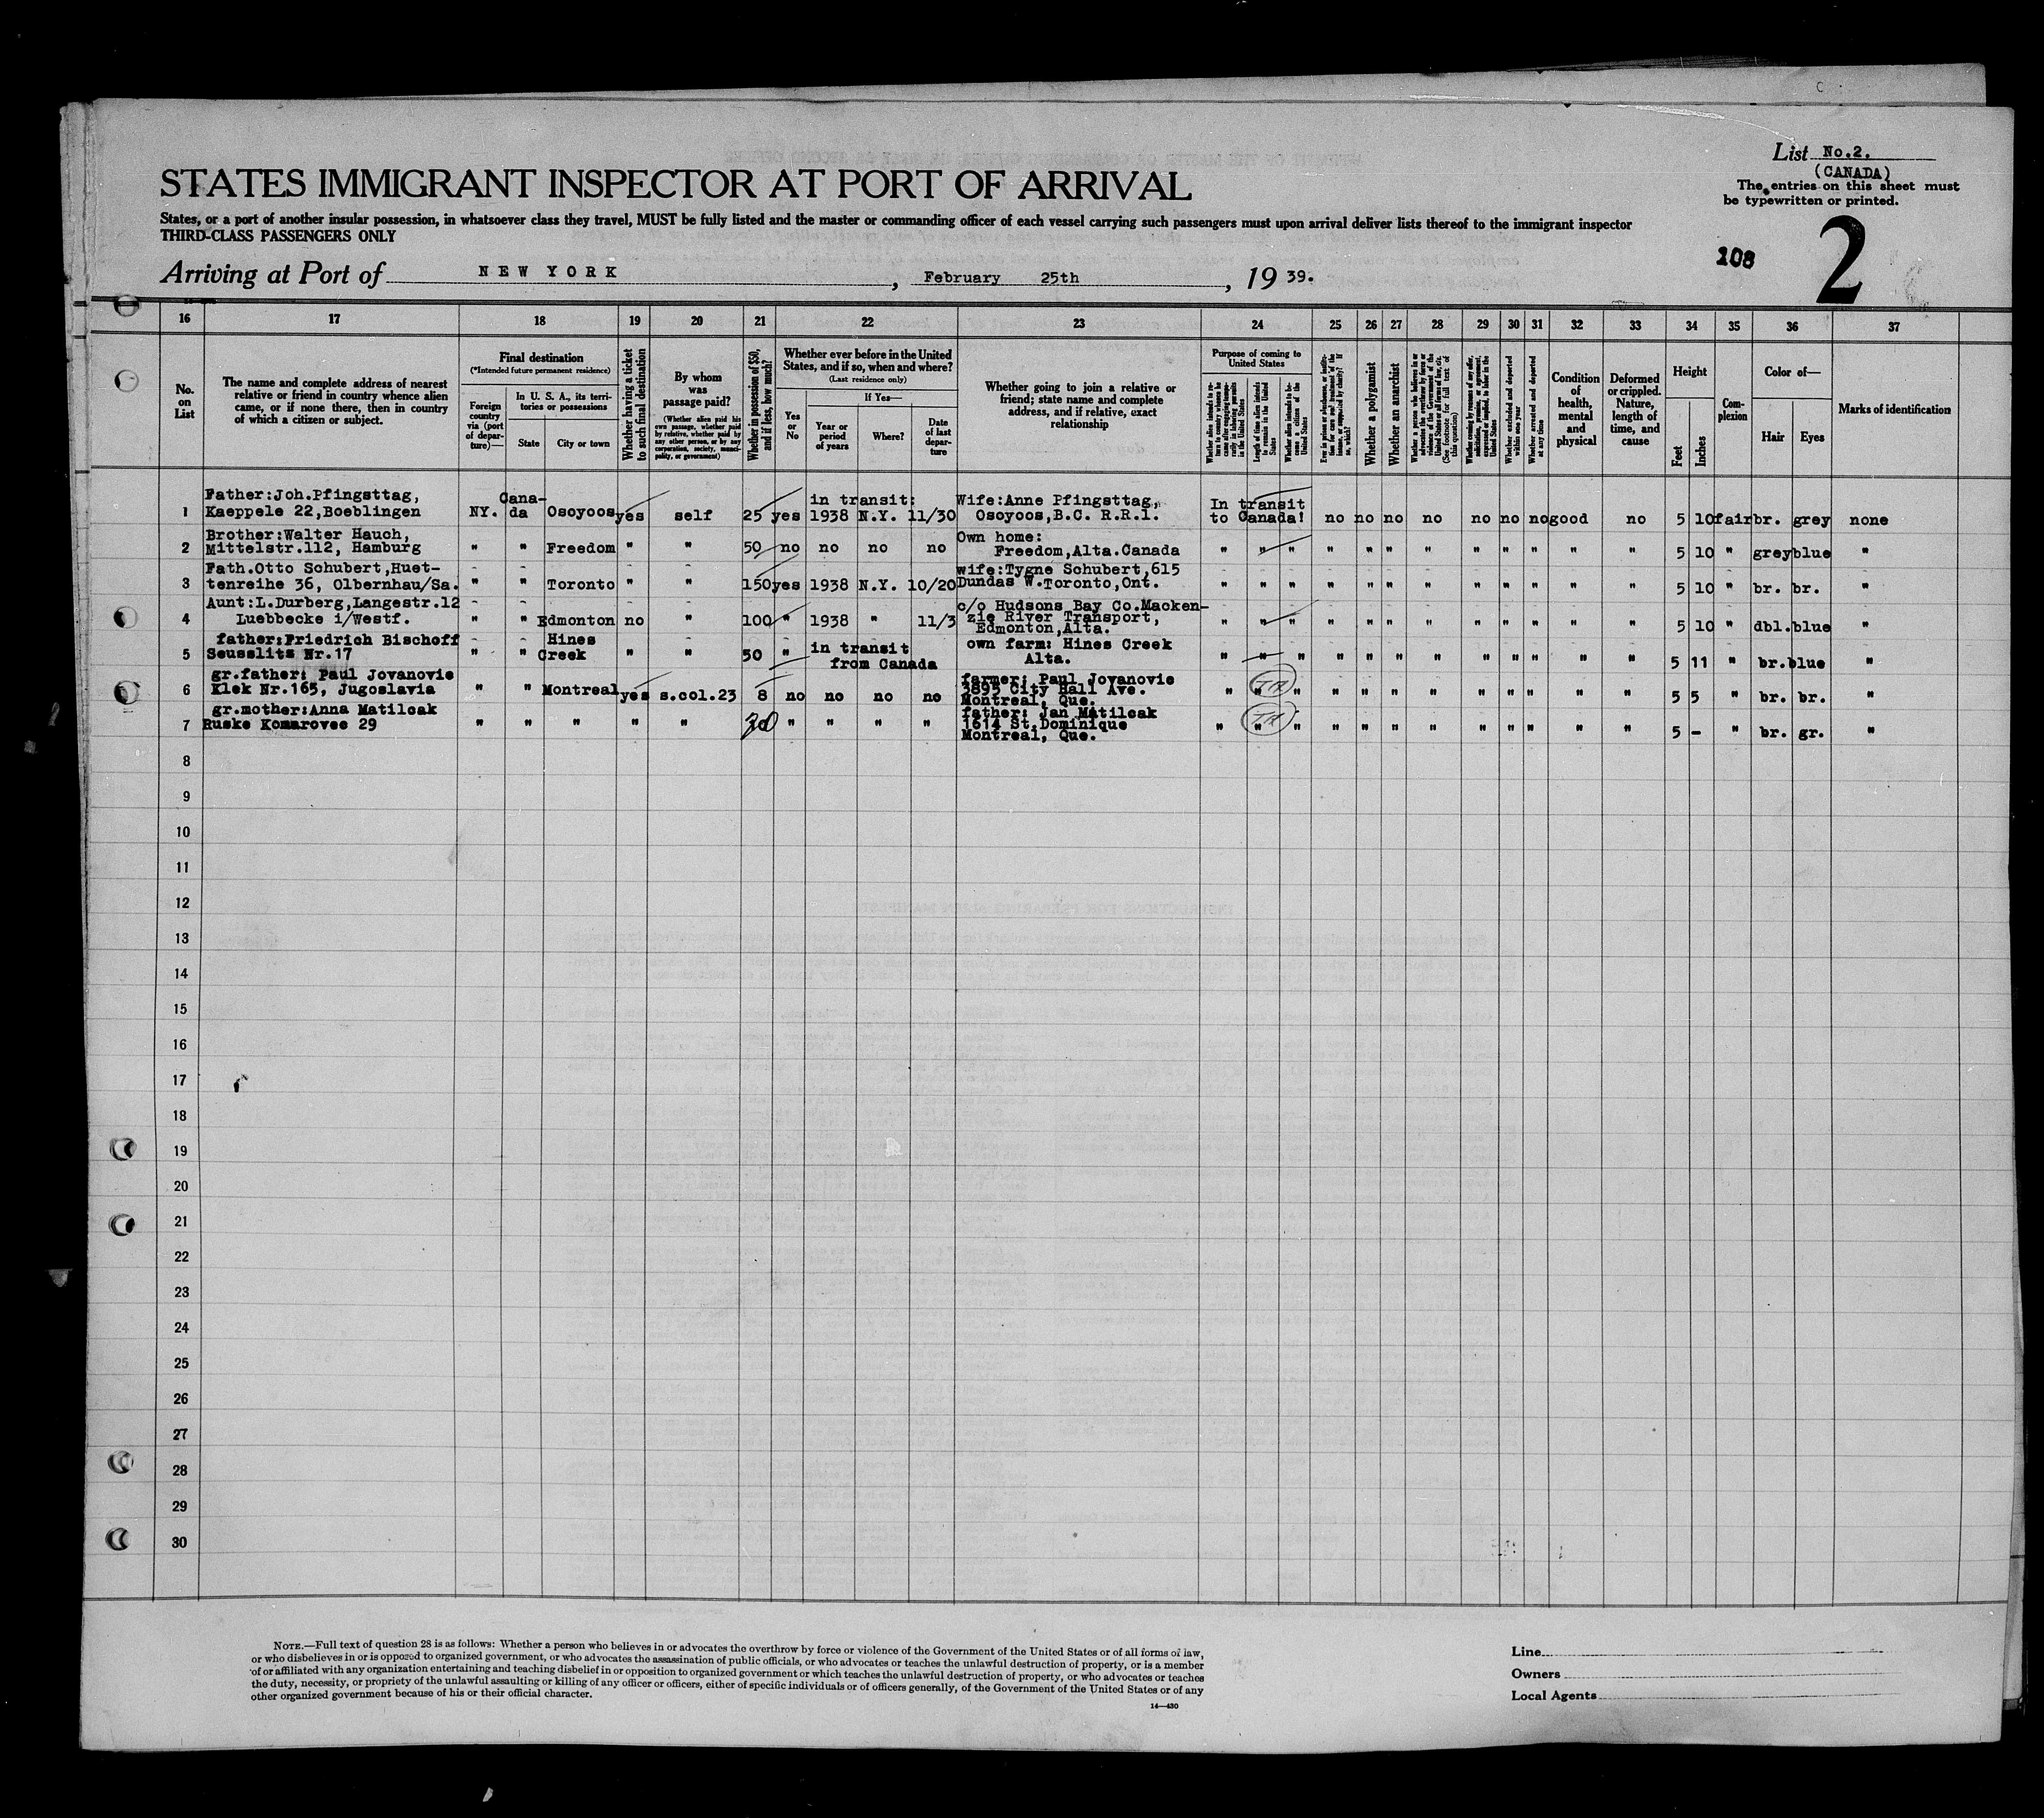 List No.2.
(CANADA)
The entries on this sheet must
be typewritten or printed.
STATES IMMIGRANT INSPECTOR AT PORT OF ARRIVAL
States, or a port of another insular possession, in whatsoever class they travel, MUST be fully listed and the master or commanding officer of each vessel carrying such passengers must upon arrival deliver lists thereof to the immigrant inspector
THIRD-CLASS PASSENGERS ONLY
108 2
Arriving at Port of NEW YORK, February 25th, 1939.
16 17 18 19 20 21 22 23 24 25 26 27 28 29 30 31 32 33 34 35 36 37
No. on List
The name and complete address of nearest relative or friend in country whence alien came, or if none there, then in country of which a citizen or subject.
Final destination
(*Intended future permanent residence)
Foreign country via (port of departure)—
In U. S. A., its territories or possessions
State
City or town
Whether having a ticket to such final destination
By whom was passage paid?
(Whether alien paid his own passage, whether paid by relative, whether paid by any other person, or by any corporation, society, municipality, or government)
Whether in possession of $50, and if less, how much?
Whether ever before in the United States, and if so, when and where?
(Last residence only)
Yes or No
If Yes—
Year or period of years
Where?
Date of last departure
Whether going to join a relative or friend; state name and complete address, and if relative, exact relationship
Purpose of coming to United States
Length of time alien intends to remain in the United States
Whether alien intends to become a citizen of the United States
Whether a polygamist
Whether an anarchist
Whether excluded and deported within one year
Whether arrested and deported at any time
Condition of health, mental and physical
Deformed or crippled. Nature, length of time, and cause
Height
Feet
Inches
Complexion
Color of—
Hair
Eyes
Marks of identification
Father:Joh.Pfingsttag, Cana- in transit: Wife:Anne Pfingsttag, In transit
1 Kaeppele 22,Boeblingen NY. da Osoyoos yes self 25 yes 1938 N.Y. 11/30 Osoyoos,B.C. R.R.1. to Canada! no no no no no no no good no 5 10 fair br. grey none
Brother:Walter Hauch, Own home:
2 Mittelstr.112, Hamburg " " Freedom " " 50 no no no no Freedom,Alta.Canada " " " " " " " " " " " " 5 10 " grey blue "
Fath.Otto Schubert,Huet- wife:Tygne Schubert,615
3 tenreihe 36, Olbernhau/Sa. " " Toronto " " 150 yes 1938 N.Y. 10/20 Dundas W.Toronto,Ont. " " " " " " " " " " " " 5 10 " br. br. "
Aunt:L.Durberg,Langestr.12 c/o Hudsons Bay Co.Macken-
4 Luebbecke i/Westf. " " Edmonton no " 100 " 1938 " 11/3 zie River Transport, " " " " " " " " " " " " 5 10 " dbl. blue "
Edmonton,Alta.
father:Friedrich Bischoff Hines in transit own farm: Hines Creek
5 Seusslitz Nr.17 " " Creek " " 50 " from Canada Alta. " " " " " " " " " " " " 5 11 " br. blue "
gr.father: Paul Jovanovie farmer: Paul Jovanovie
6 Klek Nr.165, Jugoslavia " " Montreal yes s.col.23 8 no no no no 3895 City Hall Ave. " " " " " " " " " " " " 5 5 " br. br. "
Montreal, Que.
gr.mother:Anna Matilcak father: Jan Matilcak
7 Ruske Komarovce 29 " " " " " " " " " 1614 St.Dominique " " " " " " " " " " " " 5 - " br. gr. "
Montreal, Que.
8
9
10
11
12
13
14
15
16
17
18
19
20
21
22
23
24
25
26
27
28
29
30
NOTE.—Full text of question 28 is as follows: Whether a person who believes in or advocates the overthrow by force or violence of the Government of the United States or of all forms of law,
or who disbelieves in or is opposed to organized government, or who advocates the assassination of public officials, or who advocates or teaches the unlawful destruction of property, or is a member
of or affiliated with any organization entertaining and teaching disbelief in or opposition to organized government or which teaches the unlawful destruction of property, or who advocates or teaches
the duty, necessity, or propriety of the unlawful assaulting or killing of any officer or officers, either of specific individuals or of officers generally, of the Government of the United States or of any
other organized government because of his or their official character.
14—430
Line
Owners
Local Agents